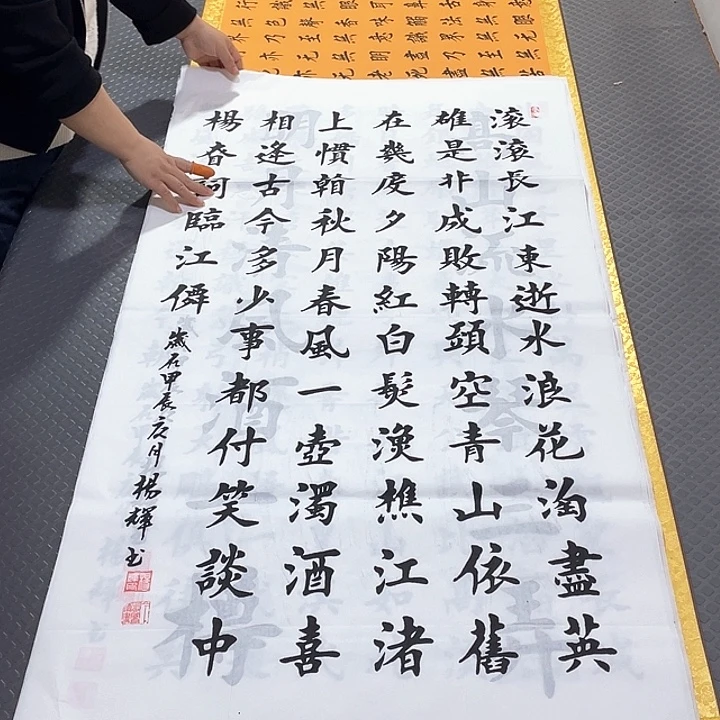 滚滚長江東逝水浪花淘盡英
雄是非成敗轉頭空青山依舊
在幾度夕陽紅白髮漁樵江渚
上慣看秋月春風一壺濁酒喜
相逢古今多少事都付笑談中
楊昚詞臨江僊
歲在甲辰月楊輝书